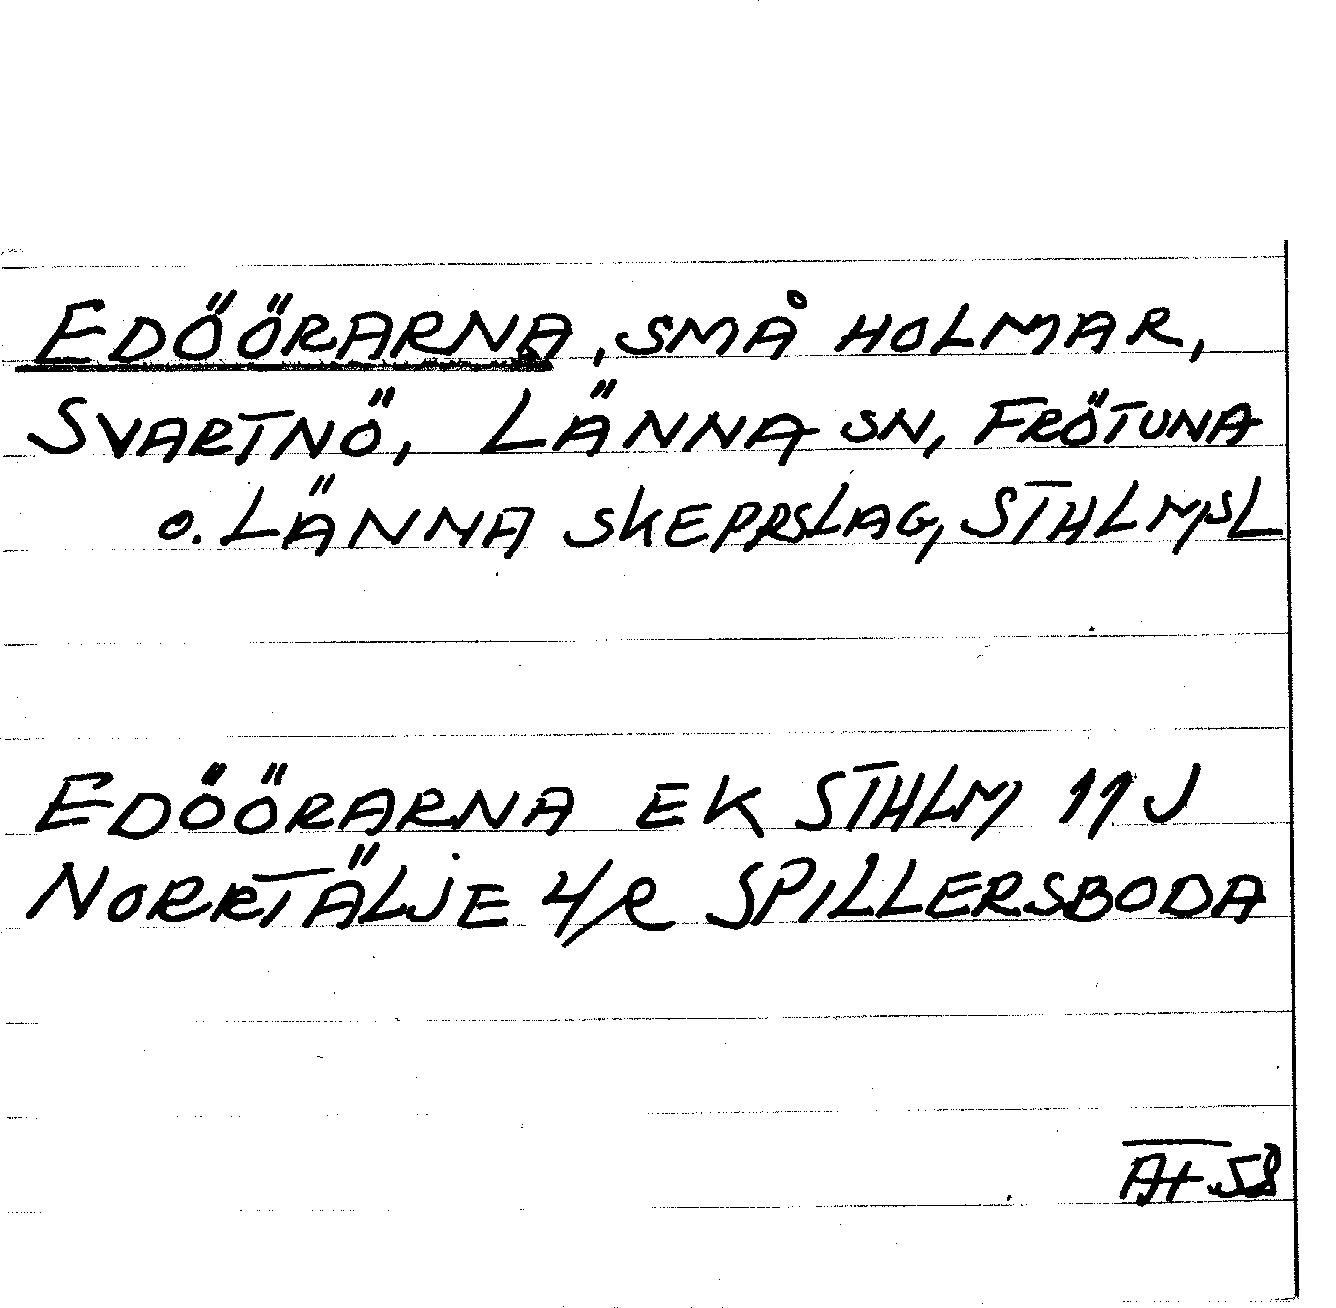 EDÖÖRARNA, SMÅ HOLMAR,
SVARTNÖ, LÄNNA SN, FRÖTUNA
O. LÄNNA SKEPPSLAG, STHLMSL
EDÖÖRARNA EK STHLM 11 J
NORRTÄLJE 4/R SPILLERSBODA
58